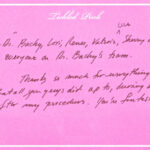 Tickled Pink
Lisa
Dr. Bachy, Lori, Renee, Valerie, Sherry &
everyone on Dr. Bachy's team.
Thanks so much for everything
that all you guys did up to, during &
after my procedure. You're fantastic